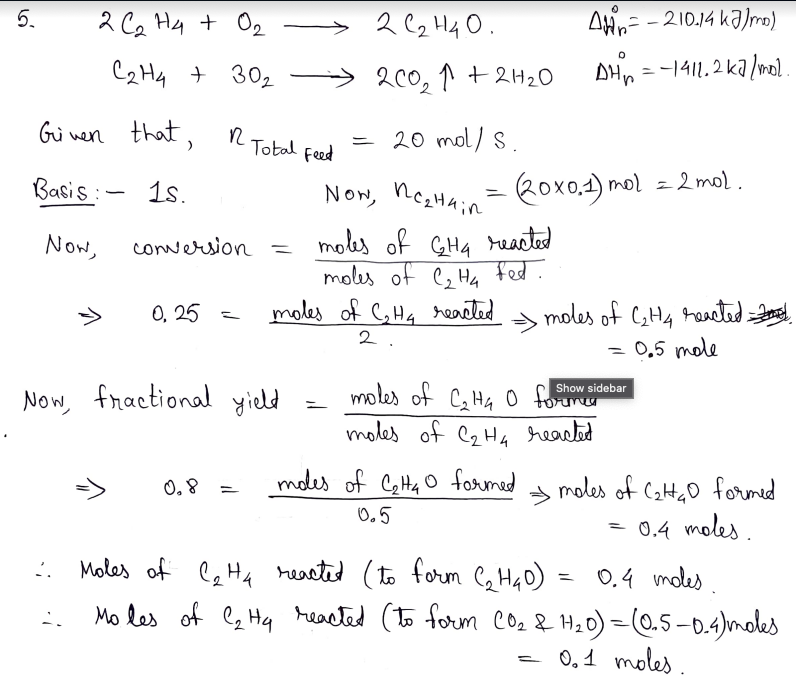 5. 2 C₂H₄ + O₂ ⟶ 2 C₂H₄O. ΔH°ᵣ = -210.14 kJ/mol
C₂H₄ + 3O₂ ⟶ 2CO₂ ↑ + 2H₂O ΔH°ᵣ = -1411.2 kJ/mol.
Given that, n Total Feed = 20 mol/s.
Basis :- 1s. Now, n C₂H₄ in = (20×0.1) mol = 2 mol.
Now, conversion = moles of C₂H₄ reacted
moles of C₂H₄ fed.
⇒ 0.25 = moles of C₂H₄ reacted ⇒ moles of C₂H₄ reacted
2. = 0.5 mole
Show sidebar
Now, fractional yield = moles of C₂H₄O formed
moles of C₂H₄ reacted
⇒ 0.8 = moles of C₂H₄O formed ⇒ moles of C₂H₄O formed
0.5 = 0.4 moles.
∴ Moles of C₂H₄ reacted (to form C₂H₄O) = 0.4 moles.
∴ Moles of C₂H₄ reacted (to form CO₂ & H₂O) = (0.5-0.4) moles
= 0.1 moles.